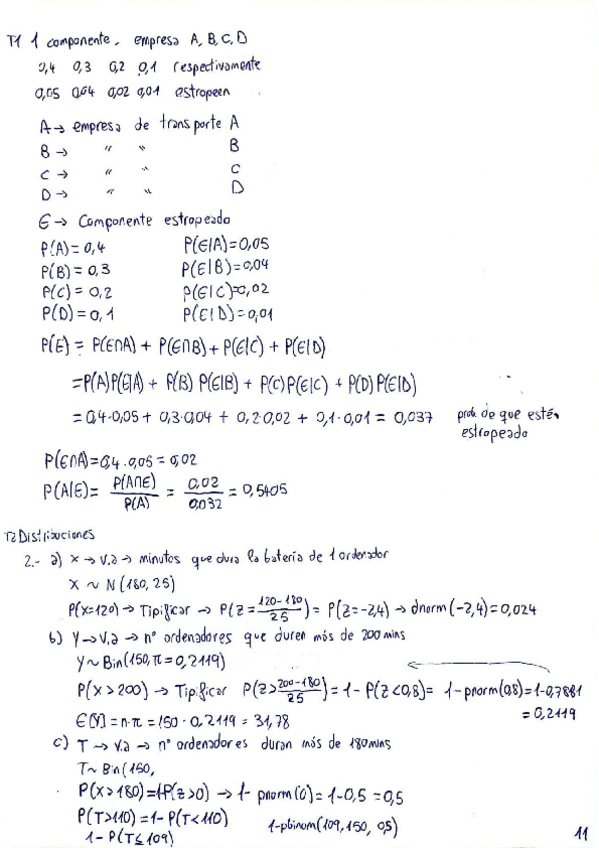 T1 1 componente. empresa A, B, C, D
0,4 0,3 0,2 0,1 respectivamente
0,05 0,04 0,02 0,01 estropeen
A → empresa de transporte A
B → " " B
C → " " C
D → " " D
E → Componente estropeado
P(A) = 0,4 P(E|A) = 0,05
P(B) = 0,3 P(E|B) = 0,04
P(C) = 0,2 P(E|C) = 0,02
P(D) = 0,1 P(E|D) = 0,01
P(E) = P(E∩A) + P(E∩B) + P(E|C) + P(E|D)
= P(A)P(E|A) + P(B) P(E|B) + P(C)P(E|C) + P(D)P(E|D)
= 0,4·0,05 + 0,3·0,04 + 0,2·0,02 + 0,1·0,01 = 0,037 prob. de que esté
estropeado
P(E∩A) = 0,4·0,05 = 0,02
P(A|E) = P(A∩E)/P(A) = 0,02/0,032 = 0,5405
T2 Distribuciones
2.- a) x → v.a → minutos que dura la batería de 1 ordenador
X ~ N(180, 25)
P(x=120) → Tipificar → P(Z = 120-180/25) = P(Z=-2,4) → dnorm(-2,4) = 0,024
b) Y → v.a → nº ordenadores que duren más de 200 mins
Y ~ Bin(150, π = 0,2119)
P(X > 200) → Tipificar P(Z > 200-180/25) = 1 - P(Z < 0,8) = 1 - pnorm(0,8) = 1 - 0,7881
= 0,2119
E(Y) = n·π = 150 · 0,2119 = 31,78
c) T → v.a → nº ordenadores duran más de 180 mins
T ~ Bin(150,
P(X > 180) = 1-P(Z > 0) → 1- pnorm(0) = 1 - 0,5 = 0,5
P(T > 110) = 1 - P(T < 110) 1-pbinom(109, 150, 0,5)
1 - P(T ≤ 109)
11